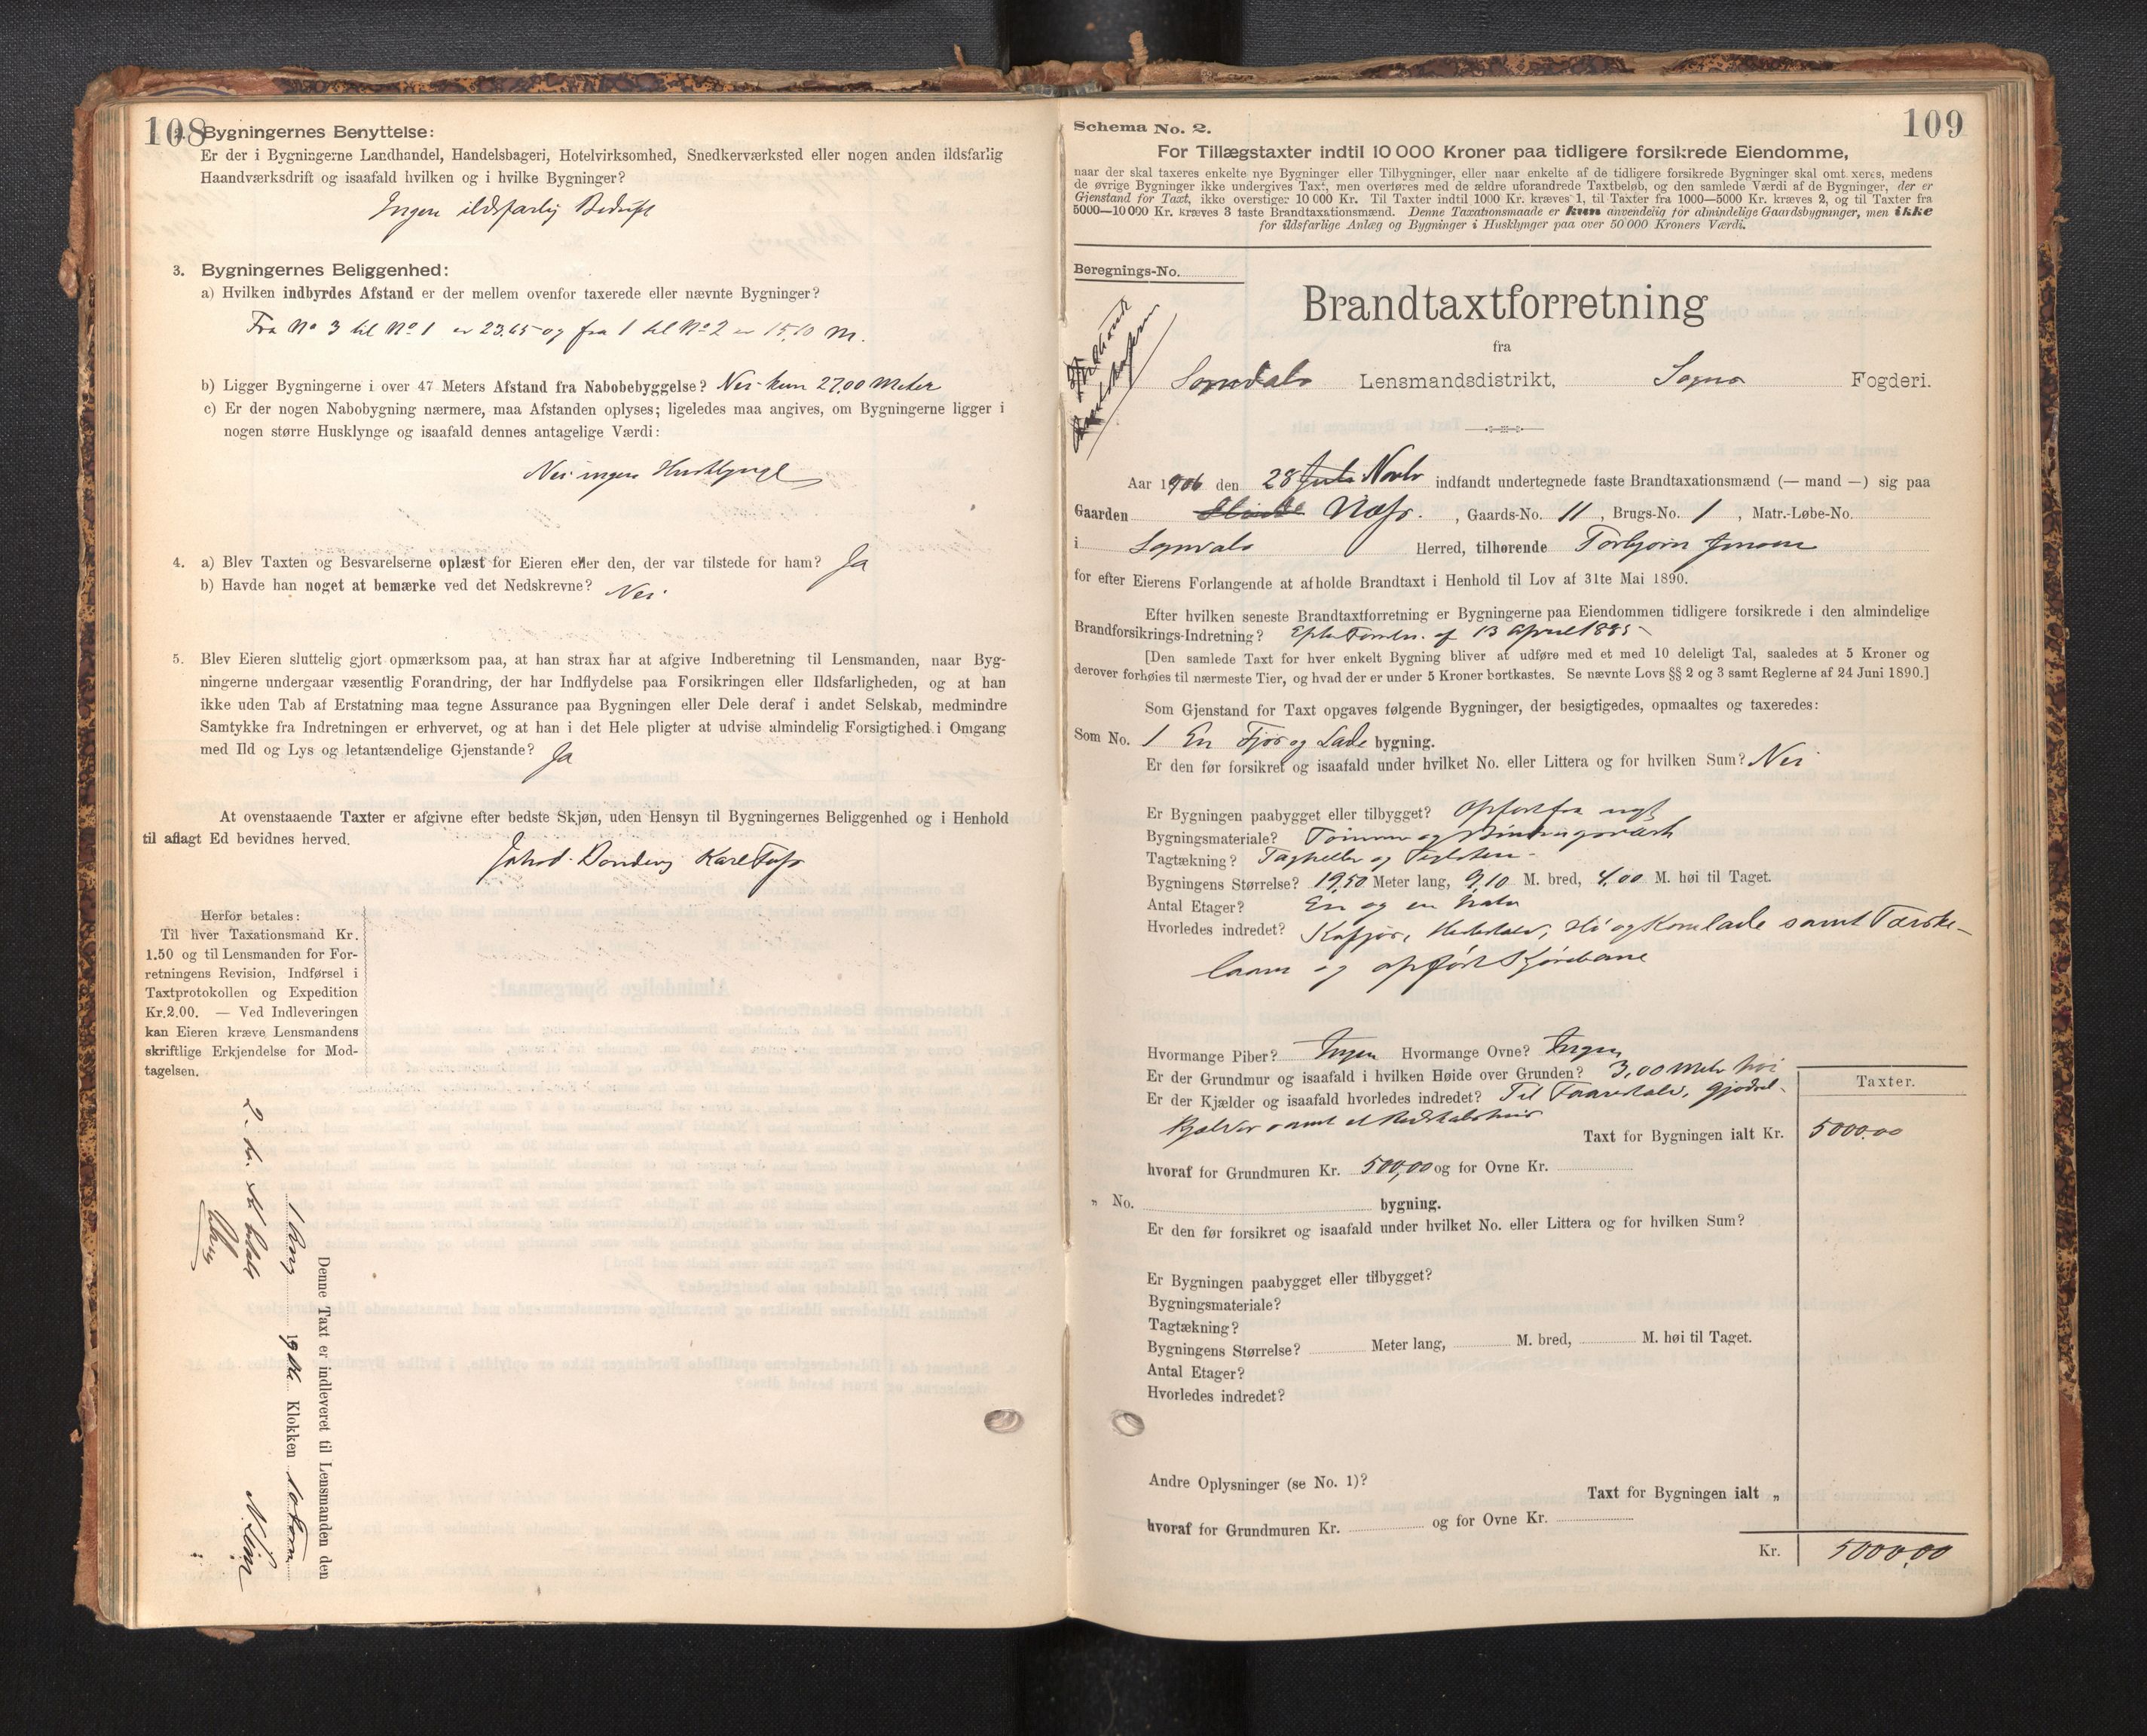 108
2. Bygningernes Benyttelse:
Er der i Bygningerne Landhandel, Handelsbageri, Hotelvirksomhed, Snedkerværksted eller nogen anden ildsfarlig
Haandværksdrift og isaafald hvilken og i hvilke Bygninger?
Ingen ildsfarlig Bedrift
3. Bygningernes Beliggenhed:
a) Hvilken indbyrdes Afstand er der mellem ovenfor taxerede eller nævnte Bygninger?
Fra No 3 til No 1 er 23.65 og fra 1 til No 2 er 15,10 M.
b) Ligger Bygningerne i over 47 Meters Afstand fra Nabobebyggelse? Nei kun 27,00 Meter
c) Er der nogen Nabobygning nærmere, maa Afstanden oplyses; ligeledes maa angives, om Bygningerne ligger i
nogen større Husklynge og isaafald dennes antagelige Værdi:
Nei ingen Husklynge
4. a) Blev Taxten og Besvarelserne oplæst for Eieren eller den, der var tilstede for ham? Ja
b) Havde han noget at bemærke ved det Nedskrevne? Nei
5. Blev Eieren sluttelig gjort opmærksom paa, at han strax har at afgive Indberetning til Lensmanden, naar Byg-
ningerne undergaar væsentlig Forandring, der har Indflydelse paa Forsikringen eller Ildsfarligheden, og at han
ikke uden Tab af Erstatning maa tegne Assurance paa Bygningen eller Dele deraf i andet Selskab, medmindre
Samtykke fra Indretningen er erhvervet, og at han i det Hele pligter at udvise almindelig Forsigtighed i Omgang
med Ild og Lys og letantændelige Gjenstande? Ja
At ovenstaaende Taxter er afgivne efter bedste Skjøn, uden Hensyn til Bygningernes Beliggenhed og i Henhold
til aflagt Ed bevidnes herved.
Karl
Herfor betales:
Til hver Taxationsmand Kr.
1.50 og til Lensmanden for For-
retningens Revision, Indførsel i
Taxtprotokollen og Expedition
Kr.2.00. — Ved Indleveringen
kan Eieren kræve Lensmandens
skriftlige Erkjendelse for Mod-
tagelsen.
Denne Taxt er indleveret til Lensmanden den
19 Klokken 10
2 kr. betalt
109
Schema No. 2.
For Tillægstaxter indtil 10 000 Kroner paa tidligere forsikrede Eiendomme,
naar der skal taxeres enkelte nye Bygninger eller Tilbygninger, eller naar enkelte af de tidligere forsikrede Bygninger skal omt xeres, medens
de øvrige Bygninger ikke undergives Taxt, men overføres med de ældre uforandrede Taxtbeløb, og den samlede Værdi af de Bygninger, der er
Gjenstand for Taxt, ikke overstiger 10 000 Kr. Til Taxter indtil 1000 Kr. kræves 1, til Taxter fra 1000—5000 Kr. kræves 2, og til Taxter fra
5000—10 000 Kr. kræves 3 faste Brandtaxationsmænd. Denne Taxationsmaade er kun anvendelig for almindelige Gaardsbygninger, men ikke
for ildsfarlige Anlæg og Bygninger i Husklynger paa over 50 000 Kroners Værdi.
Beregnings-No.
Brandtaxtforretning
fra
Sogndals Lensmandsdistrikt, Sogns Fogderi.
Aar 1906 den 28 Juli Novbr indfandt undertegnede faste Brandtaxationsmænd (— mand —) sig paa
Gaarden Næss. , Gaards-No. 11 , Brugs-No. 1 , Matr.-Løbe-No.
i Sogndals Herred, tilhørende Torbjørn
for efter Eierens Forlangende at afholde Brandtaxt i Henhold til Lov af 31te Mai 1890.
Efter hvilken seneste Brandtaxtforretning er Bygningerne paa Eiendommen tidligere forsikrede i den almindelige
Brandforsikrings-Indretning? Efter Forretn. af 13 April 1885
[Den samlede Taxt for hver enkelt Bygning bliver at udføre med et med 10 deleligt Tal, saaledes at 5 Kroner og
derover forhøies til nærmeste Tier, og hvad der er under 5 Kroner bortkastes. Se nævnte Lovs §§ 2 og 3 samt Reglerne af 24 Juni 1890.]
Som Gjenstand for Taxt opgaves følgende Bygninger, der besigtigedes, opmaaltes og taxeredes:
Som No. 1 En Fjøs og Lade bygning.
Er den før forsikret og isaafald under hvilket No. eller Littera og for hvilken Sum? Nei
Er Bygningen paabygget eller tilbygget? Opført fra nyt
Bygningsmateriale? Tømmer og Bindingsværk
Tagtækning? Tagheller og Teglsten
Bygningens Størrelse? 19,50 Meter lang, 9,10 M. bred, 4,00 M. høi til Taget.
Antal Etager? En og en halv
Hvorledes indredet? Kofjøs, Hestestald, Hø og Kornlade samt Tærske-
laave og opført Kjørebane
Hvormange Piber? Ingen Hvormange Ovne? Ingen
Er der Grundmur og isaafald i hvilken Høide over Grunden? 3,00 Meter høi
Er der Kjælder og isaafald hvorledes indredet? Til Faarestald, Gjødsel-
kjelder samt et Redskabshuus
Taxter.
Taxt for Bygningen ialt Kr. 5000,00
hvoraf for Grundmuren Kr. 500,00 og for Ovne Kr.
" No. bygning.
Er den før forsikret og isaafald under hvilket No. eller Littera og for hvilken Sum?
Er Bygningen paabygget eller tilbygget?
Bygningsmateriale?
Tagtækning?
Bygningens Størrelse? Meter lang, M. bred, M. høi til Taget.
Antal Etager?
Hvorledes indredet?
Andre Oplysninger (se No. 1)?
Taxt for Bygningen ialt "
hvoraf for Grundmuren Kr. og for Ovne Kr.
Kr. 5000,00